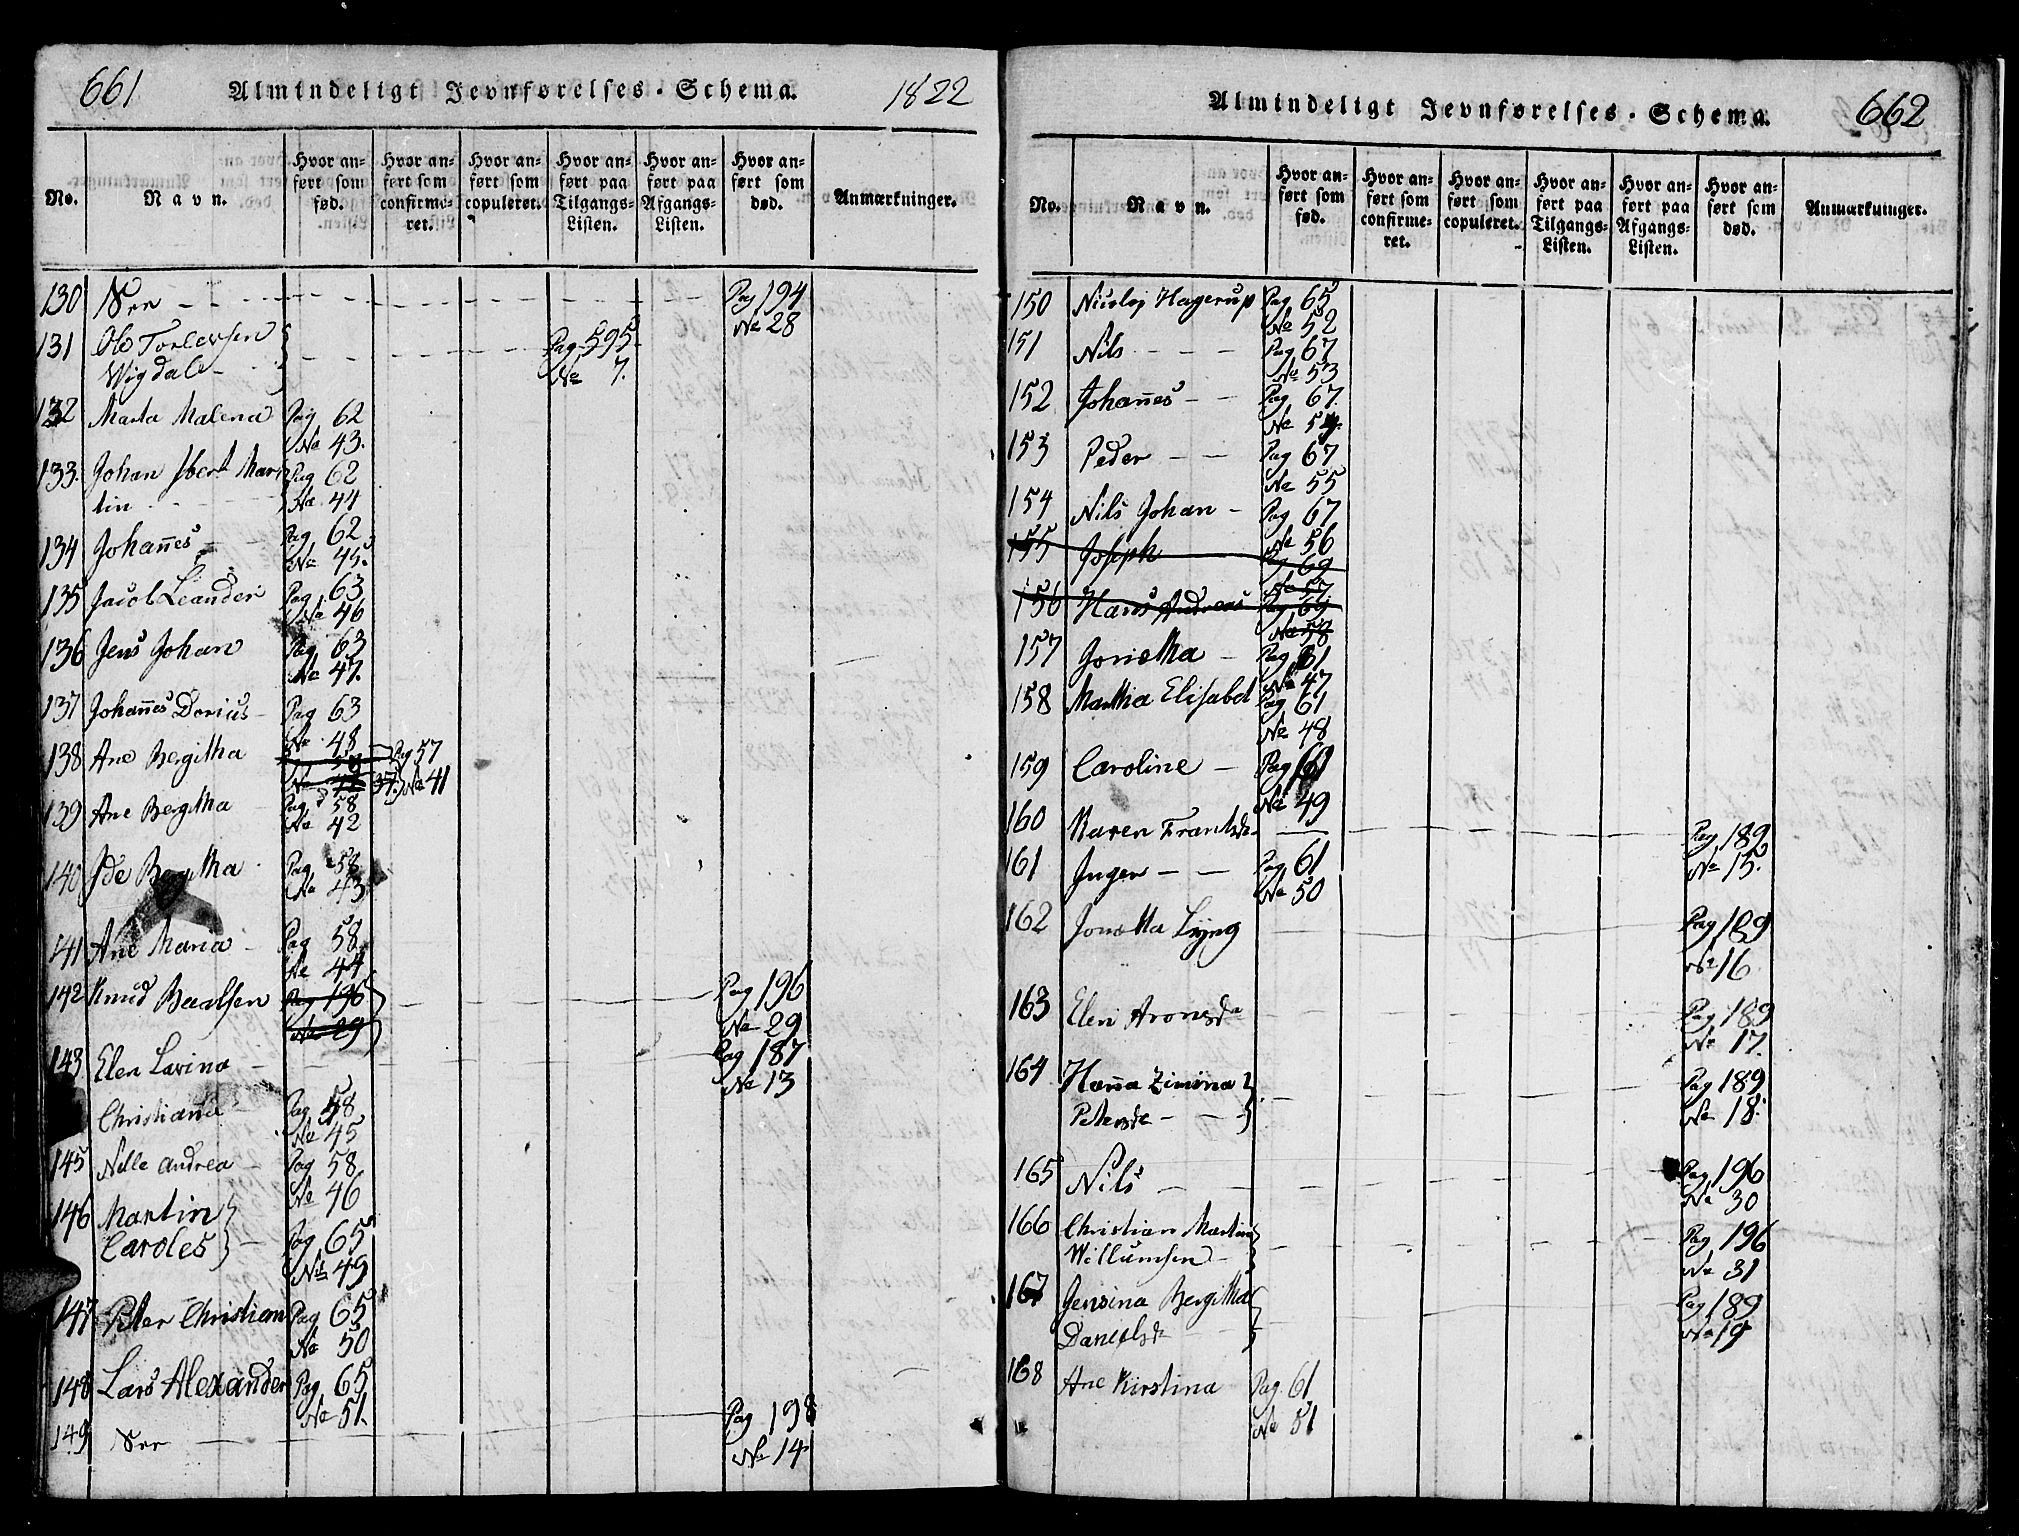 661 Almindeligt Jevnførelses-Schema. 1822
No. Navn. Hvor anført som fød. Hvor anført som confirmeret. Hvor anført som copuleret. Hvor anført paa Tilgangs-Listen. Hvor anført paa Afgangs-Listen. Hvor anført som død. Anmærkninger.
130 Pag 194
No 28
131 Ole Pag 595
Wigdale No 7.
132 Marta Malena Pag 62
No 43.
133. Johan Mar Pag 62
tin No 44
134 Johañes Pag 62
No 45.
135 Jacob Leander Pag 63
No 46
136 Jens Johan Pag 63
No 47.
137 Johañes Dorius Pag 63
No 48
138 Ane Bergitha 58 Pag 57
No 41 37. No 41
139 Ane Bergitha Pag 58
No 42
140 Ide Bergitha Pag 58
No 43
141 Ane Maria Pag 58
No 44
142 Knud Pag 196 Pag 196
No 29 No 29
143. Elen Lavina Pag 187
No 13
Christiana Pag 58
No 45
145 Nille Andrea Pag 58
No 46
146 Martin
Caroles Pag 65
No 49
147 Peter Christian Pag 65
No 50
148 Lars Alexander Pag 65
No 51.
149 Pag 198
No 14
Almindeligt Jevnførelses-Schema. 662
No. Navn. Hvor anført som fød. Hvor anført som confirmeret. Hvor anført som copuleret. Hvor anført paa Tilgangs-Listen. Hvor anført paa Afgangs-Listen. Hvor anført som død. Anmærkninger.
150 Nicolaj Hagerup Pag 65
No 52
151 Nils Pag 67
No 53
152 Johañes Pag 67.
No 54.
153 Peder Pag 67
No 55
154 Nils Johan Pag 67
No 56
155 Joseph Pag 69
No 57
156 Hans Andreas Pag 69
No 58
157 Jonetha Pag 61
No 47
158 Martha Elisabet Pag 61
No 48
159 Caroline Pag 61
No 49
160 Karen Frantsdr Pag 189
No 15.
161 Inger Pag 61
No 50
162 Jonetta Lyng Pag 189
No 16
163 Elen Aronsdr Pag 189
No 17.
164 Haña Zimina Pag 189
Petersdr No 18.
165 Nils Pag 196
No 30
166 Christian Martin Pag 196
Willumsen No 31
167 Jensina Bergitha Pag 189
Danielsdr No 19
168 Ane Kirstina Pag. 61
No 51